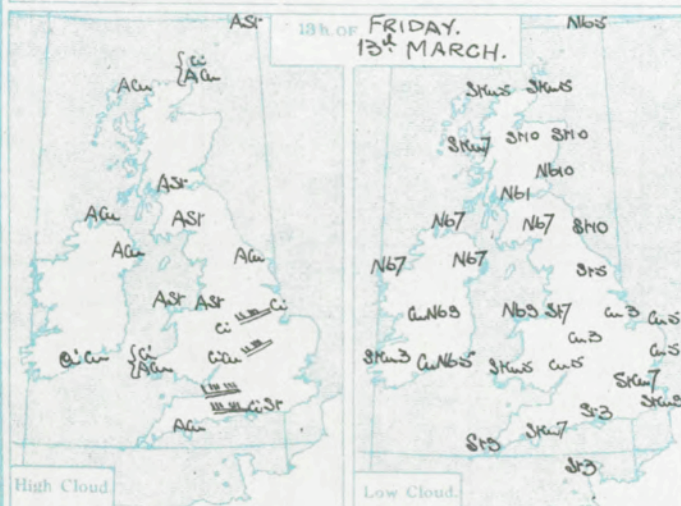 13h. OF FRIDAY.
13th MARCH.
ASt
Ci
ACu
ACu
ASt
ACu
ASt
ACu
ACu
ASt ASt
Ci
Ci
Ci Cu
Ci
ACu
CiCu
CiSt
ACu
High Cloud
Nb5
StCu5 StCu5
StCu7
St10 St10
Nb10
Nb1
Nb7 Nb7 St10
Nb7 Nb7
St5
CuNb9 Nb9 St7 Cu3 Cu5
Cu3
Cu5
StCu3 CuNb5 StCu5 Cu5
StCu7
StCu9
St3
StCu7
St9
St3
Low Cloud.